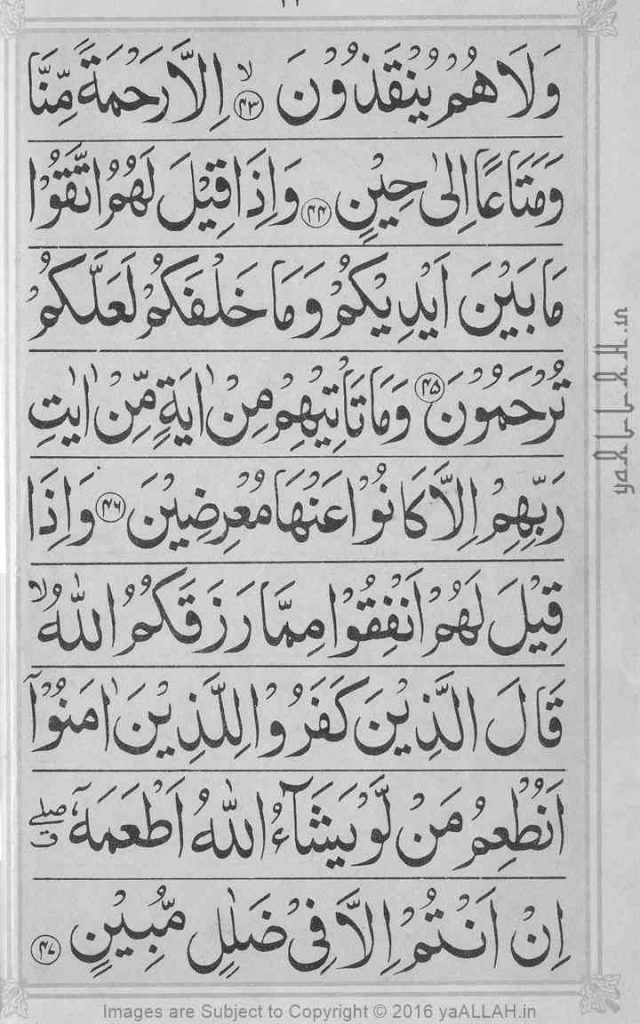 وَلَا هُمْ يُنْقَذُوْنَ ﴿۴۳﴾ۙ اِلَّا رَحْمَةً مِّنَّا
وَمَتَاعًا اِلٰى حِيْنٍ ﴿۴۴﴾ وَاِذَا قِيْلَ لَهُمُ اتَّقُوْا
مَا بَيْنَ اَيْدِيْكُمْ وَمَا خَلْفَكُمْ لَعَلَّكُمْ
تُرْحَمُوْنَ ﴿۴۵﴾ وَمَا تَاْتِيْهِمْ مِنْ اٰيَةٍ مِّنْ اٰيٰتِ
رَبِّهِمْ اِلَّا كَانُوْا عَنْهَا مُعْرِضِيْنَ ﴿۴۶﴾ وَاِذَا
قِيْلَ لَهُمْ اَنْفِقُوْا مِمَّا رَزَقَكُمُ اللّٰهُ ۙ
قَالَ الَّذِيْنَ كَفَرُوْا لِلَّذِيْنَ اٰمَنُوْۤا
اَنُطْعِمُ مَنْ لَّوْ يَشَآءُ اللّٰهُ اَطْعَمَهٗۤ ۖق
اِنْ اَنْتُمْ اِلَّا فِيْ ضَلٰلٍ مُّبِيْنٍ ﴿۴۷﴾
yaALLAH.in
Images are Subject to Copyright © 2016 yaALLAH.in